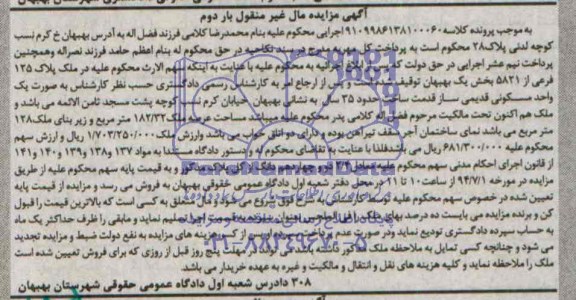 آگهی مزایده مال غیر منقول بار دوم
به موجب پرونده کلاسه ۹۱۰۹۹۸۶۱۳۸۱۰۰۰۶۰ اجرایی محکوم علیه بنام محمدرضا کلامی فرزند فضل اله به آدرس بهبهان خ کرم نسب
کوچه لدنی پلاک ۲۸ محکوم است به پرداخت کل مهریه مندرج در سند نکاحیه در حق محکوم له بنام اعظم حامد فرزند نصراله وهمچنین
پرداخت نیم عشر اجرایی در حق دولت که پس از ابلاغ اجرائیه به محکوم علیه با عنایت به اینکه سهم الارث محکوم علیه در ملک پلاک ۱۳۵
فرعی از ۵۸۲۱ بخش یک بهبهان توقیف گردیده است و پس از ارجاع امر به کارشناس رسمی دادگستری حسب نظر کارشناس به صورت یک
واحد مسکونی قدیمی ساز قدمت ساخت حدود ۳۵ سال به نشانی بهبهان خیابان کرم نسب کوچه پشت مسجد ثامن الائمه می باشد و
ملک هم اکنون تحت مالکیت مرحوم فضل اله کلامی پدر محکوم علیه میباشد مساحت عرصه ملک ۱۸۲/۳۲ متر مربع و زیر بنای ملک ۱۲۸
متر مربع می باشد نمای ساختمان آجر سقف تیرآهن بوده و دارای دو اتاق خواب می باشد وارزش ملک ۱/۷۰۳/۲۵۰/۰۰۰ ریال و ارزش سهم
محکوم علیه ۶۸۱/۳۰۰/۰۰۰ ریال می باشد فلذا با عنایت به تقاضای محکوم له و دستور دادگاه مستندا به مواد ۱۳۷ و ۱۳۸ و ۱۳۹ و ۱۴۰ و ۱۴۱
از قانون اجرای احکام مدنی سهم محکوم علیه معادل چهاردهم مالکیت پلاک مذکور و به قیمت پایه سهم محکوم علیه از طریق
مزایده در مورخه ۹۴/۷/۱ از ساعت ۱۰ تا ۱۱ در محل دفتر شعبه اول دادگاه عمومی حقوقی بهبهان به فروش می رسد و مزایده از قیمت پایه
تعیین شده در خصوص سهم محکوم علیه توسط کارشناس به شرح فوق شروع می شود و مال متعلق به کسی است که بالاترین قیمت را قبول
کن و برنده مزایده می بایست ده درصد بهای ملک را فی المجلس بعنوان سپرده تسلیم نماید و مابقی را ظرف حداکثر یک ماه
به حساب سپرده دادگستری تودیع نماید ودر صورت عدم پرداخت سپرده او پس از کسر هزینه های مزایده به نفع دولت ضبط و مزایده تجدید
می شود و چنانچه کسی تمایل به ملاحظه ملک مذکور داشته باشد می تواند در مهلت پنج روز قبل از روزی که برای فروش تعیین شده است
ملک را ملاحظه نماید و کلیه هزینه های نقل و انتقال و مالکیت و غیره به عهده خریدار می باشد
۳۰۸ دادرس شعبه اول دادگاه عمومی حقوقی شهرستان بهبهان
۰۲۱-۸۸۳۴۹۶۷۰-۵